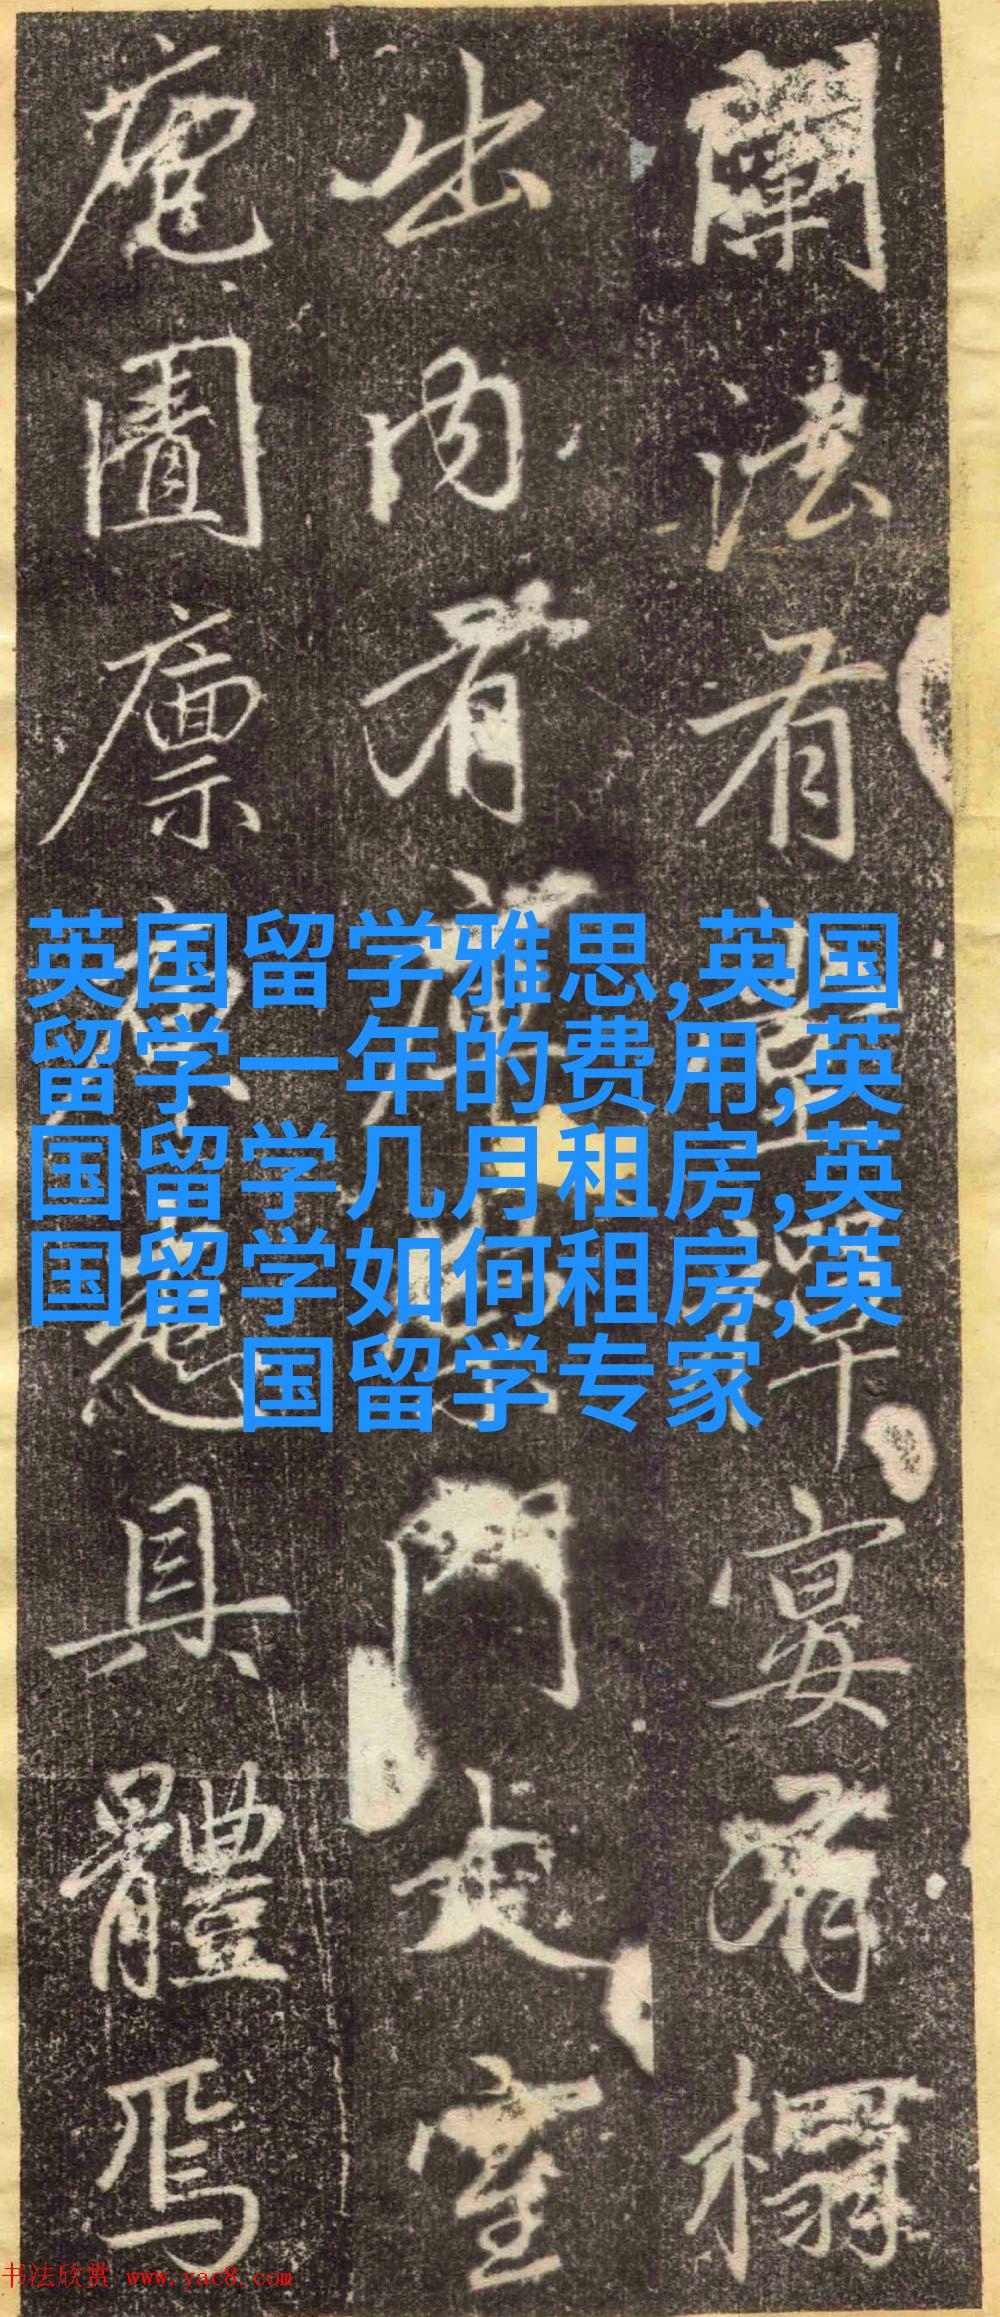 闡法有禪宴有榻
出內有門室
庖圊廩悉具體焉
英国留学雅思,英国
留学一年的费用,英
国留学几月租房,英
国留学如何租房,英
国留学专家
书法欣赏 www.yac8.com